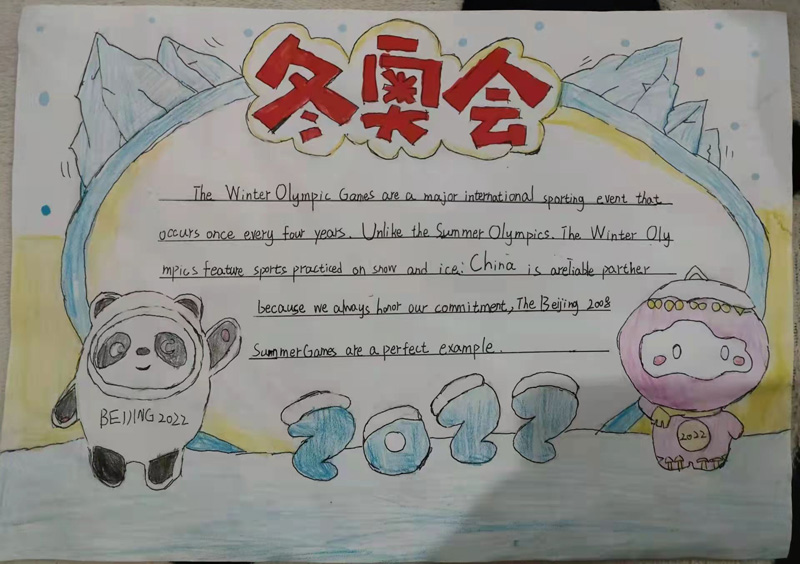 冬奥会
The Winter Olympic Games are a major international sporting event that
occurs once every four years. Unlike the Summer Olympics. The Winter Oly
mpics feature sports practiced on snow and ice; China is areliable parther
because we always honor our commitment, The Beijing 2008
Summer Games are a perfect example.
BEIJING 2022
2022
2022